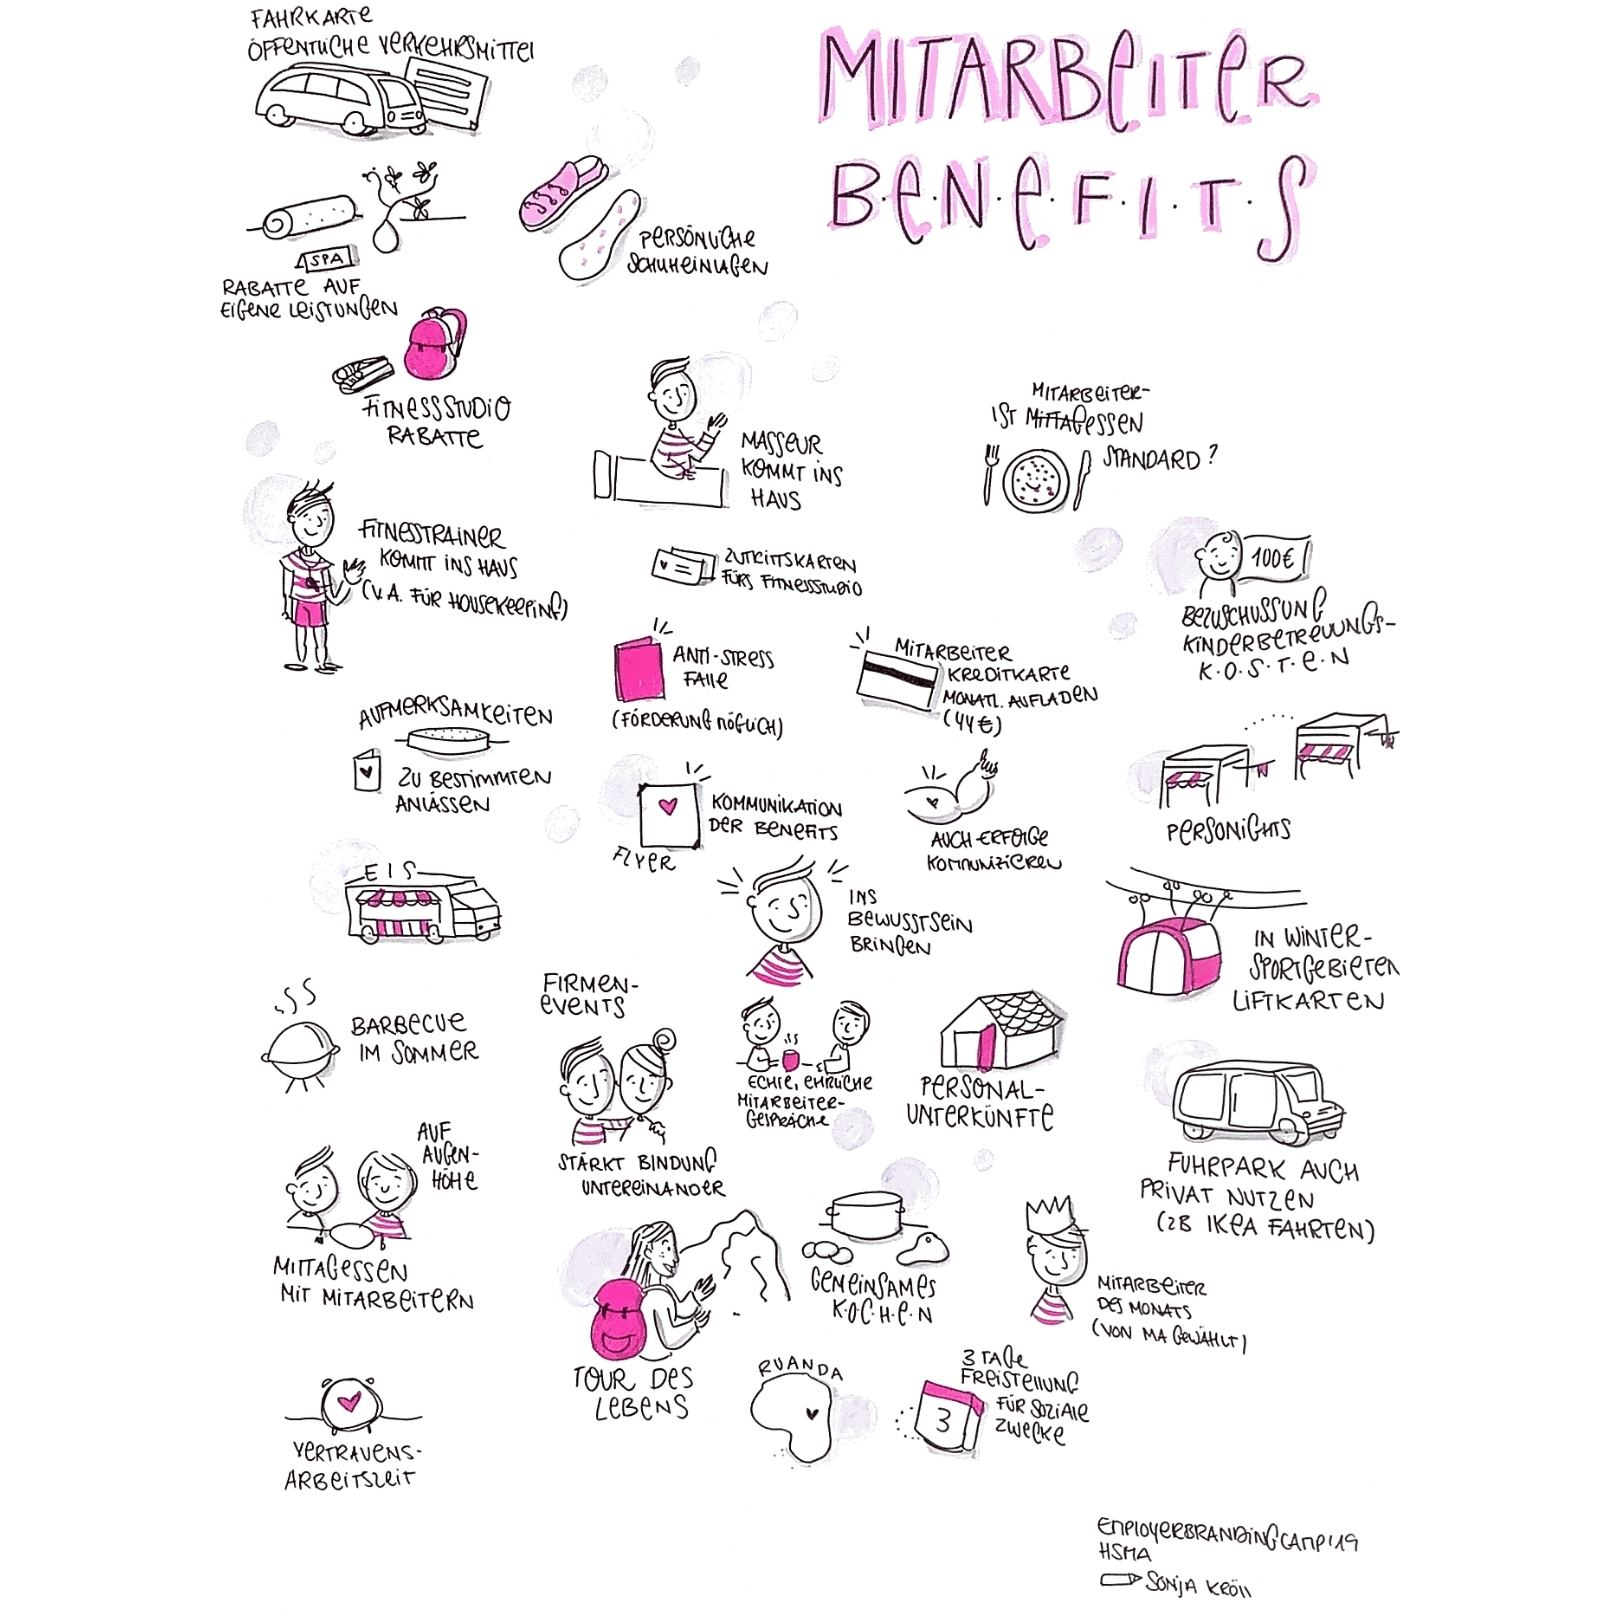 MITARBEITER
BENEFITS
FAHRKARTE
ÖFFENTLICHE VERKEHRSMITTEL
SPA
RABATTE AUF
EIGENE LEISTUNGEN
PERSÖNLICHE
SCHUHEINLAGEN
FITNESSSTUDIO
RABATTE
MASSEUR
KOMMT INS
HAUS
MITARBEITER-
IST MITTAGESSEN
STANDARD?
FITNESTRAINER
KOMMT INS HAUS
(V.A. FÜR HOUSEKEEPING)
ZUTRITTSKARTEN
FÜRS FITNESSTUDIO
100€
BEZUSCHUSSUNG
KINDERBETREUUNGS-
K.O.S.T.E.N
ANTI-STRESS
FALLE
(FÖRDERUNG MÖGLICH)
MITARBEITER
KREDITKARTE
MONATL. AUFLADEN
(44€)
AUFMERKSAMKEITEN
ZU BESTIMMTEN
ANLÄSSEN
KOMMUNIKATION
DER BENEFITS
FLYER
AUCH ERFOLGE
KOMMUNIZIEREN
PERSONIGHTS
EIS
INS
BEWUSSTSEIN
BRINGEN
IN WINTER-
SPORTGEBIETEN
LIFTKARTEN
BARBECUE
IM SOMMER
FIRMEN-
EVENTS
STÄRKT BINDUNG
UNTEREINANDER
ECHTE, EHRLICHE
MITARBEITER-
GESPRÄCHE
PERSONAL-
UNTERKÜNFTE
FUHRPARK AUCH
PRIVAT NUTZEN
(ZB IKEA FAHRTEN)
AUF
AUGEN-
HÖHE
MITTAGESSEN
MIT MITARBEITERN
GEMEINSAMES
K.O.C.H.E.N
MITARBEITER
DES MONATS
(VON MA GEWÄHLT)
TOUR DES
LEBENS
RUANDA
3 TAGE
FREISTELLUNG
FÜR SOZIALE
ZWECKE
3
VERTRAUENS-
ARBEITSZEIT
EMPLOYERBRANDINGCAMP'19
HSMA
SONJA KRÖLL